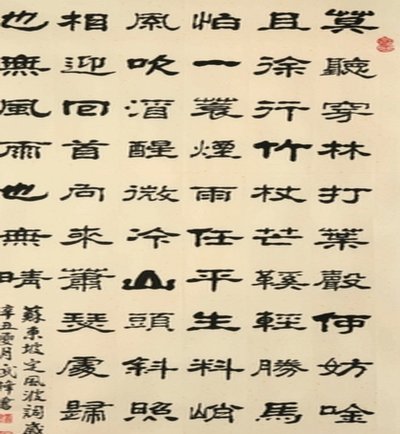 莫聽穿林打葉聲何妨唫
且徐行竹杖芒鞵輕勝馬
怕一蓑煙雨任平生料峭
風吹酒醒微冷山頭斜照
相迎回首向來蕭瑟處歸
也無風雨也無晴
蘇東坡定風波詞歲
辛丑夏月武書